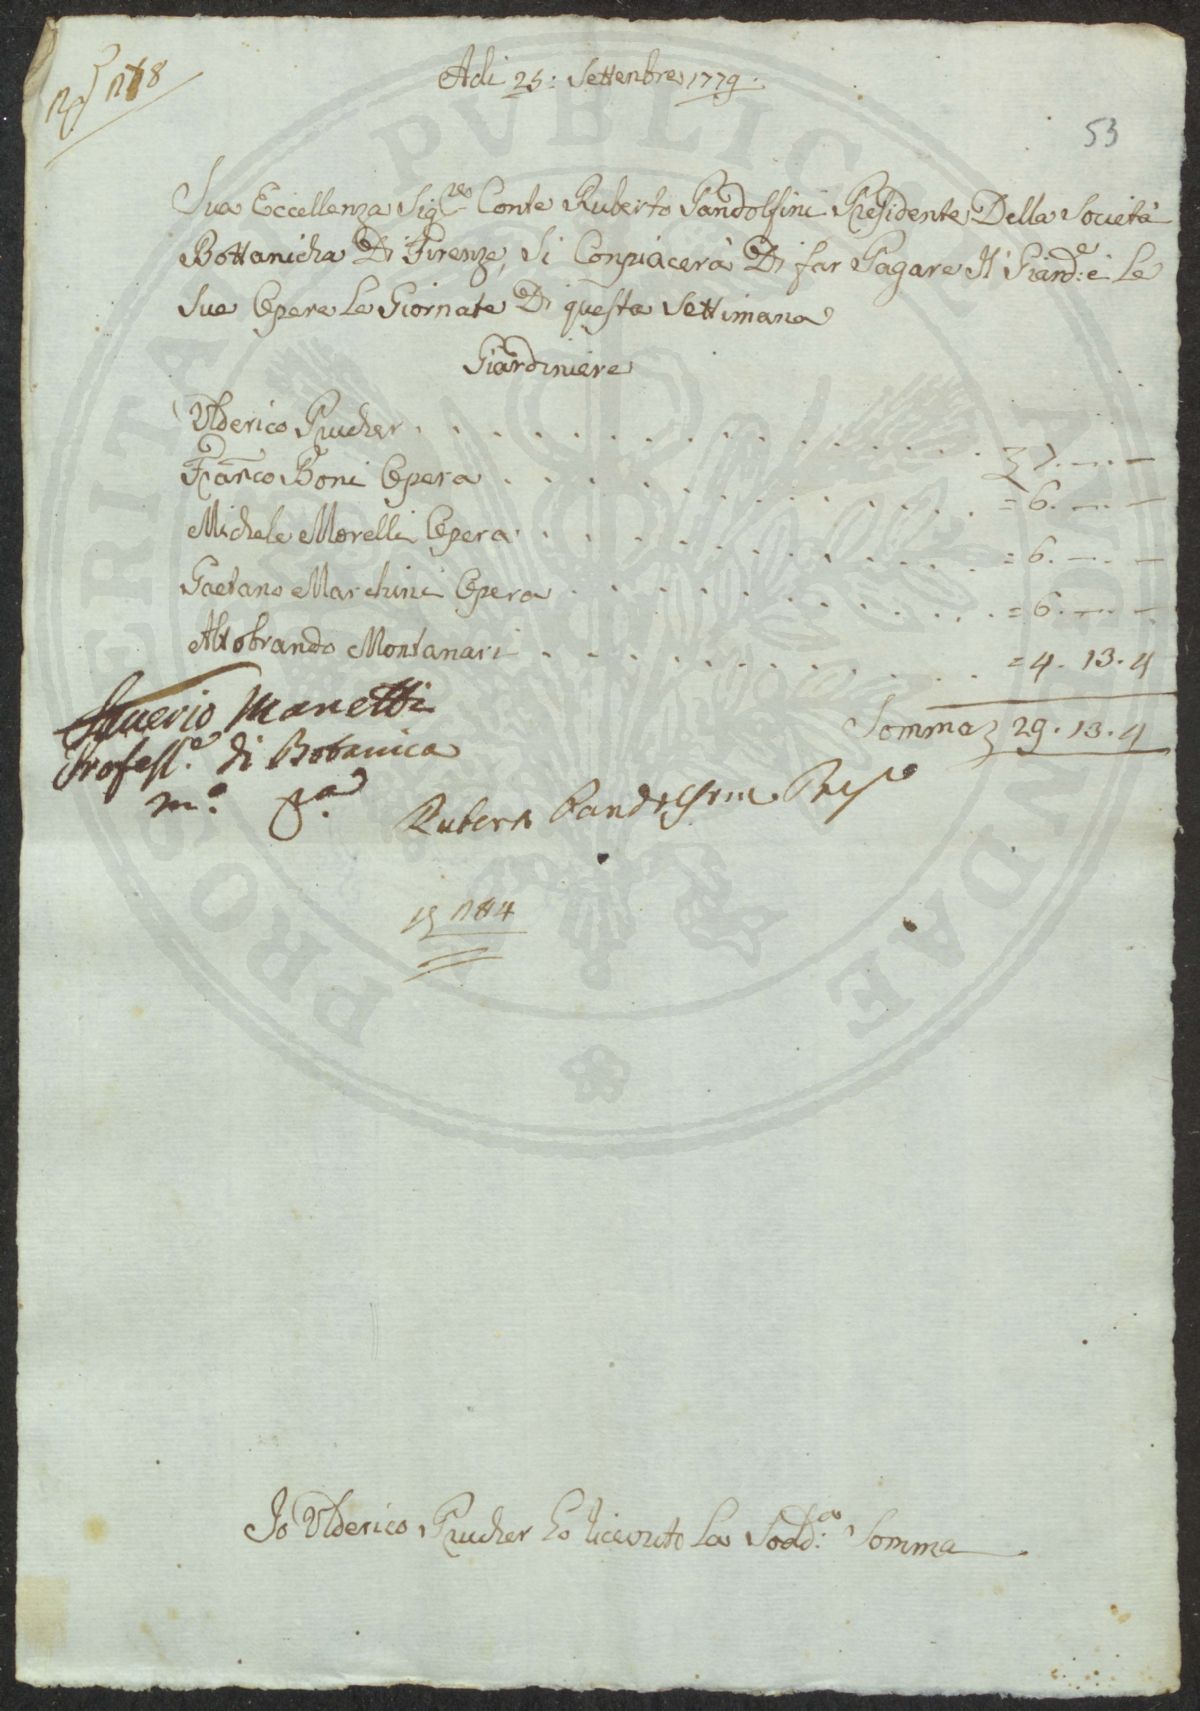 Adi 25: Settenbre 1779.
53
Sua Eccellenza Sig.re Conte Ruberto Pandolfini Presidente Della Società
Bottanicha Di Firenze, Si Conpiacerà Di far Pagare Il Giard.e: e Le
Sue Opere Le Giornate Di questa Settimana
Giardiniere
Ulderico Prucher . . . . . . . . . . . . . . 7. — . —
Franco Boni Opera . . . . . . . . . . . . = 6. — . —
Michele Morelli Opera . . . . . . . . . . . = 6. — . —
Gaetano Marchini Opera . . . . . . . . . . = 6. — . —
Altobrando Montanari . . . . . . . . . . = 4. 13. 4
Somma 29. 13. 4
Saverio Manetti
Profess.e di Botanica
m.o p.a
Ruberto Pandolfini Pres.e
Io Ulderico Prucher ho ricevuto La Sodd.a Somma
PROSPERITATI PVBLICAE AVGENDAE